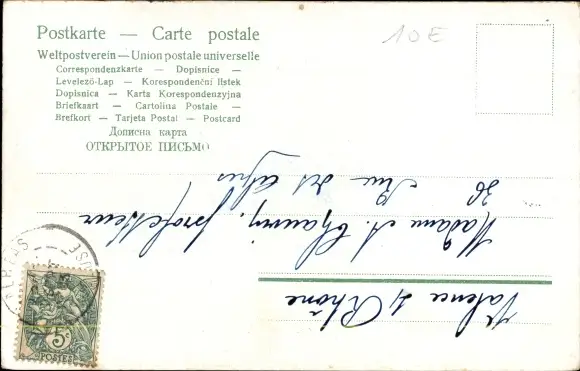 Postkarte — Carte postale
Weltpostverein — Union postale universelle
Correspondenzkarte — Dopisnice —
Levelező-Lap — Korespondenční listek
Dopisnica — Karta Korespondenzyjna
Briefkaart — Cartolina Postale —
Brefkort — Tarjeta Postal — Postcard
Дописна карта
ОТКРЫТОЕ ПИСЬМО
10 E
Madame A. Chauvin, professeur
30 Rue des Alpes
Valence s/ Rhône
5c
POSTES